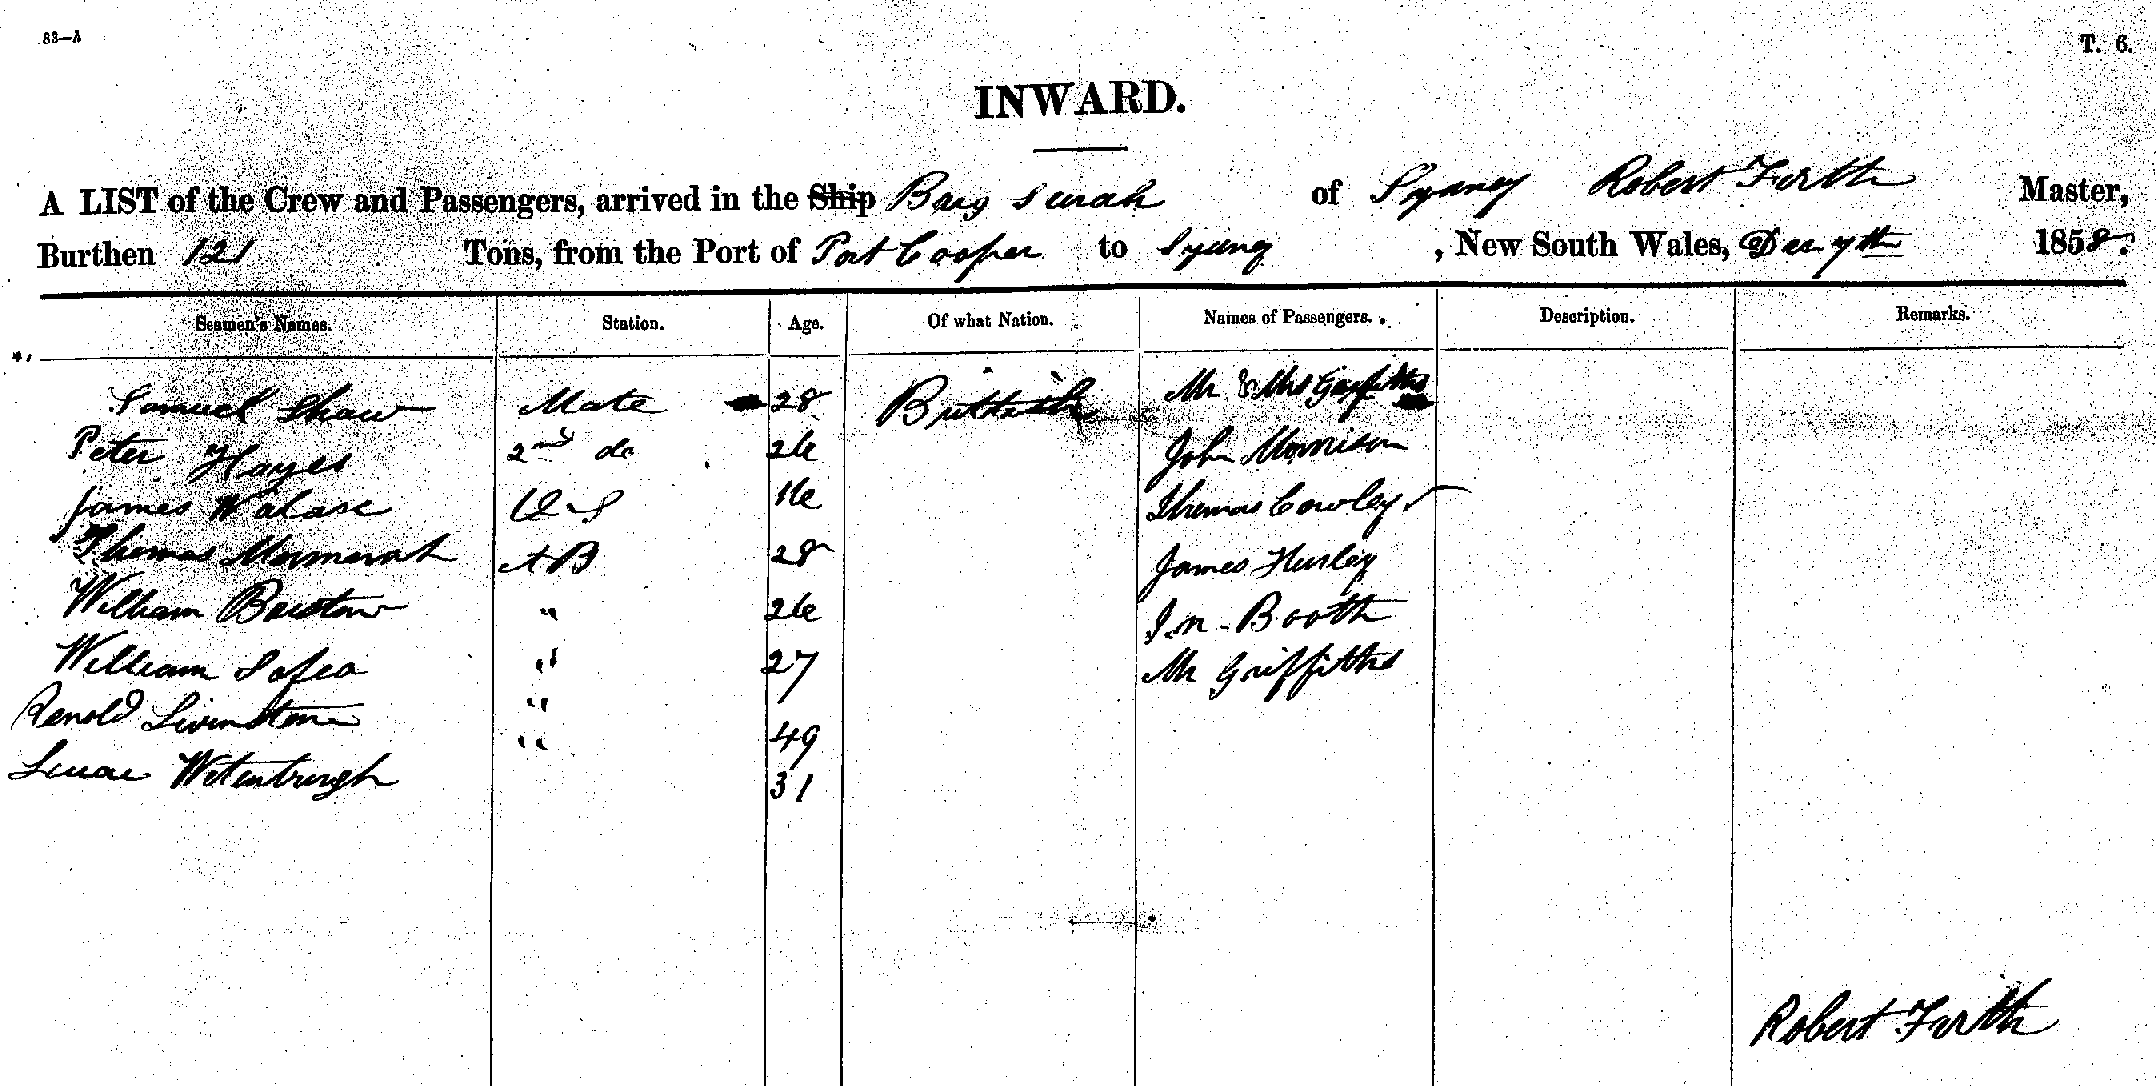 83—A
T. 6.
INWARD.
A LIST of the Crew and Passengers, arrived in the Ship Barq Sarah of Sydney Robert Firth Master,
Burthen 121 Tons, from the Port of Port Cooper to Sydney, New South Wales, Dec 7th 1858.
Seamen's Names. Station. Age. Of what Nation. Names of Passengers. Description. Remarks.
Samuel Shaw Mate 28 British Mr & Mrs Griffiths
Peter Hayes 2nd do 26 John Morrison
James Walase 16 Thomas Cowley
Thomas AB 28 James Hurley
William Bristow " 26 Booth
William " 27 Mr Griffiths
Arnold Livinstone " 49
" 31
Robert Firth